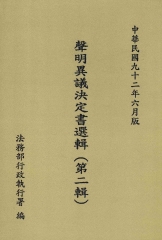 中華民國九十二年六月版
聲明異議決定書選輯（第二輯）
法務部行政執行署 編